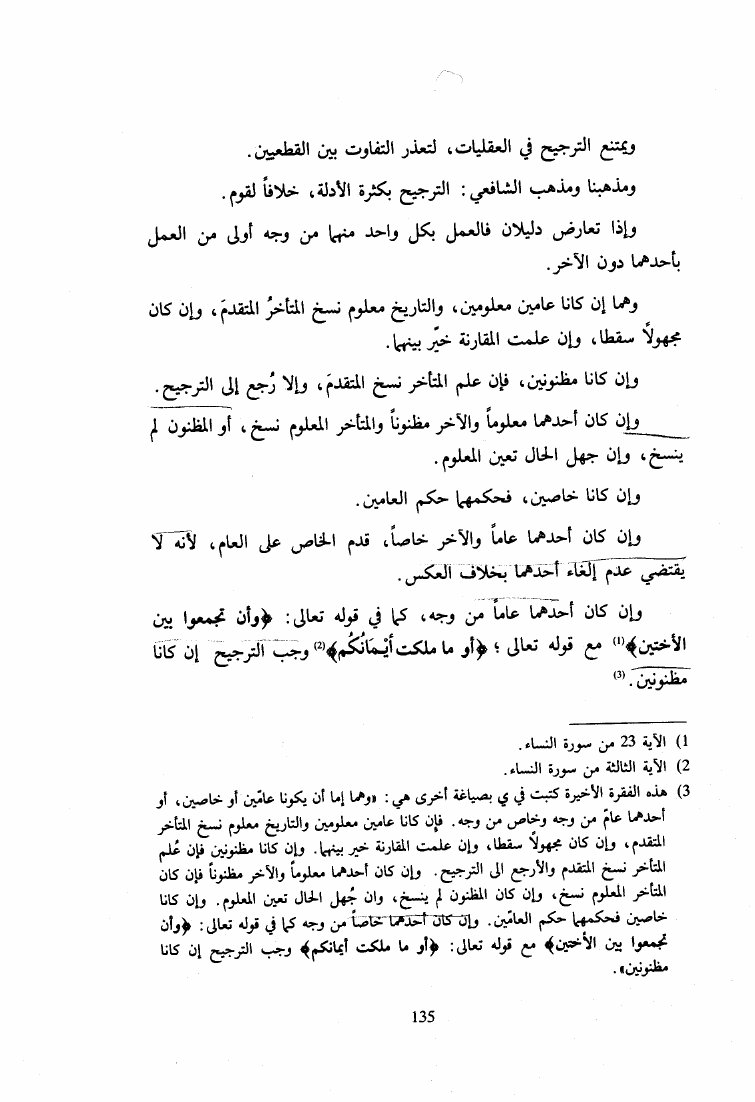 ويمتنع الترجيح في العقليات، لتعذر التفاوت بين القطعيين.
ومذهبنا ومذهب الشافعي: الترجيح بكثرة الأدلة، خلافاً لقوم.
وإذا تعارض دليلان فالعمل بكل واحد منهما من وجه أولى من العمل
بأحدهما دون الآخر.
وهما إن كانا عامين معلومين، والتاريخ معلوم نسخ المتأخرُ المتقدمَ، وإن كان
مجهولاً سقطا، وإن علمت المقارنة خيّر بينهما.
وإن كانا مظنونين، فإن علم المتأخر نسخ المتقدمَ، وإلا رُجع إلى الترجيح.
وإن كان أحدهما معلوماً والآخر مظنوناً والمتأخر المعلوم نسخ، أو المظنون لم
ينسخ، وإن جهل الحال تعين المعلوم.
وإن كانا خاصين، فحكمهما حكم العامين.
وإن كان أحدهما عاماً والآخر خاصاً، قدم الخاص على العام، لأنه لا
يقتضي عدم إلغاء أحدهما بخلاف العكس.
وإن كان أحدهما عاماً من وجه، كما في قوله تعالى: ﴿وأن تجمعوا بين
الأختين﴾(1) مع قوله تعالى؛ ﴿أو ما ملكت أيْمَانُكُم﴾(2) وجب الترجيح إن كانا
مظنونين.(3)
1) الآية 23 من سورة النساء.
2) الآية الثالثة من سورة النساء.
3) هذه الفقرة الأخيرة كتبت في ي بصياغة أخرى هي: «وهما إما أن يكونا عامّين أو خاصين، أو
أحدهما عامّ من وجه وخاص من وجه. فإن كانا عامين معلومين والتاريخ معلوم نسخ المتأخر
المتقدم، وإن كان مجهولاً سقطا، وإن علمت المقارنة خير بينهما. وإن كانا مظنونين فإن عُلم
المتأخر نسخ المتقدم والأرجع الى الترجيح. وإن كان أحدهما معلوماً والآخر مظنوناً فإن كان
المتأخر المعلوم نسخ، وإن كان المظنون لم ينسخ، وان جُهل الحال تعين المعلوم. وإن كانا
خاصين فحكمهما حكم العامّين. وإن كان أحدهما خاصاً من وجه كما في قوله تعالى: ﴿وأن
تجمعوا بين الأختين﴾ مع قوله تعالى: ﴿أو ما ملكت أيمانكم﴾ وجب الترجيح إن كانا
مظنونين».
135